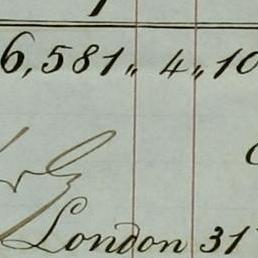 6,581,, 4,, 10
London 31